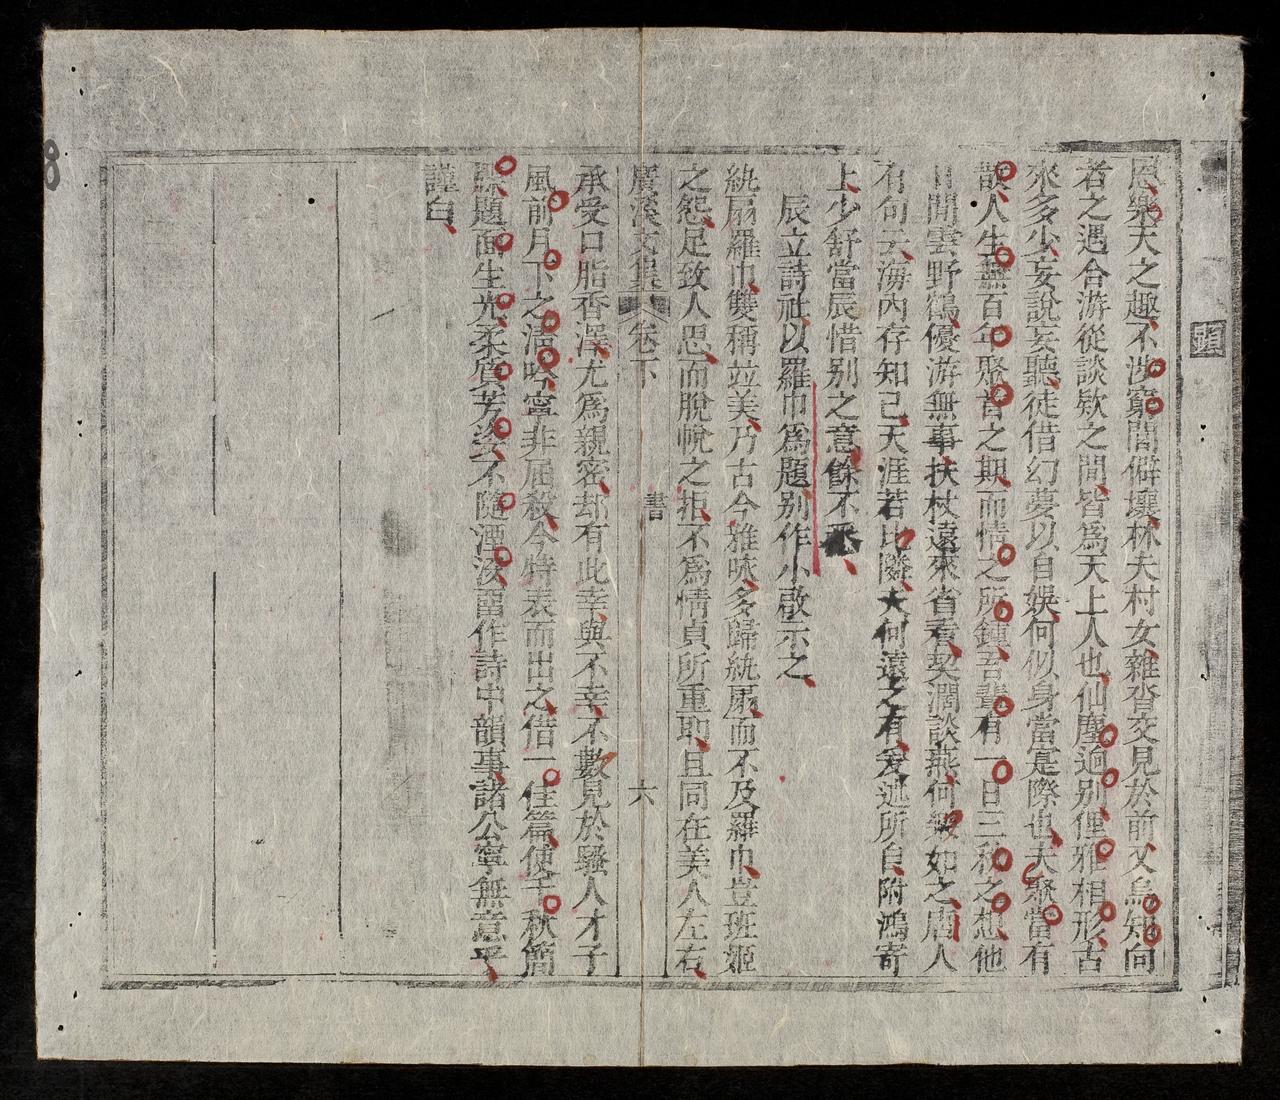 恩樂天之趣不涉窮閻僻壤林夫村女雜沓交見於前又烏知向
者之遇合游從談欵之間皆爲天上人也仙塵逈别俚雅相形古
來多少妄說妄聽徒借幻夢以自娛何似身當寔際也夫聚當有
散人生無百年聚首之期而情之所鍾吾輩有一日三秋之想他
日閒雲野鶴優游無事扶杖遠來省看契濶談燕何如之唐人
有句云海內存知己天涯若比隣夫何遠之有爰述所自附鴻寄
上少舒當辰惜别之意餘不悉
辰立詩社以羅巾爲題别作小啟示之
紈扇羅巾雙稱竝美乃古今雅咏多歸紈扇而不及羅巾豈班姬
之怨足致人思而脫帨之拒不爲情貞所重耶且同在美人左右
廣溪文集 卷下 書 六
承受口脂香澤尤爲親密却有此幸與不幸不數見於騷人才子
風前月下之清吟寧非屈殺今特表而出之借一佳篇使千秋簡
題面生光柔質芳姿不隨湮沒留作詩中韻事諸公寧無意乎
謹白